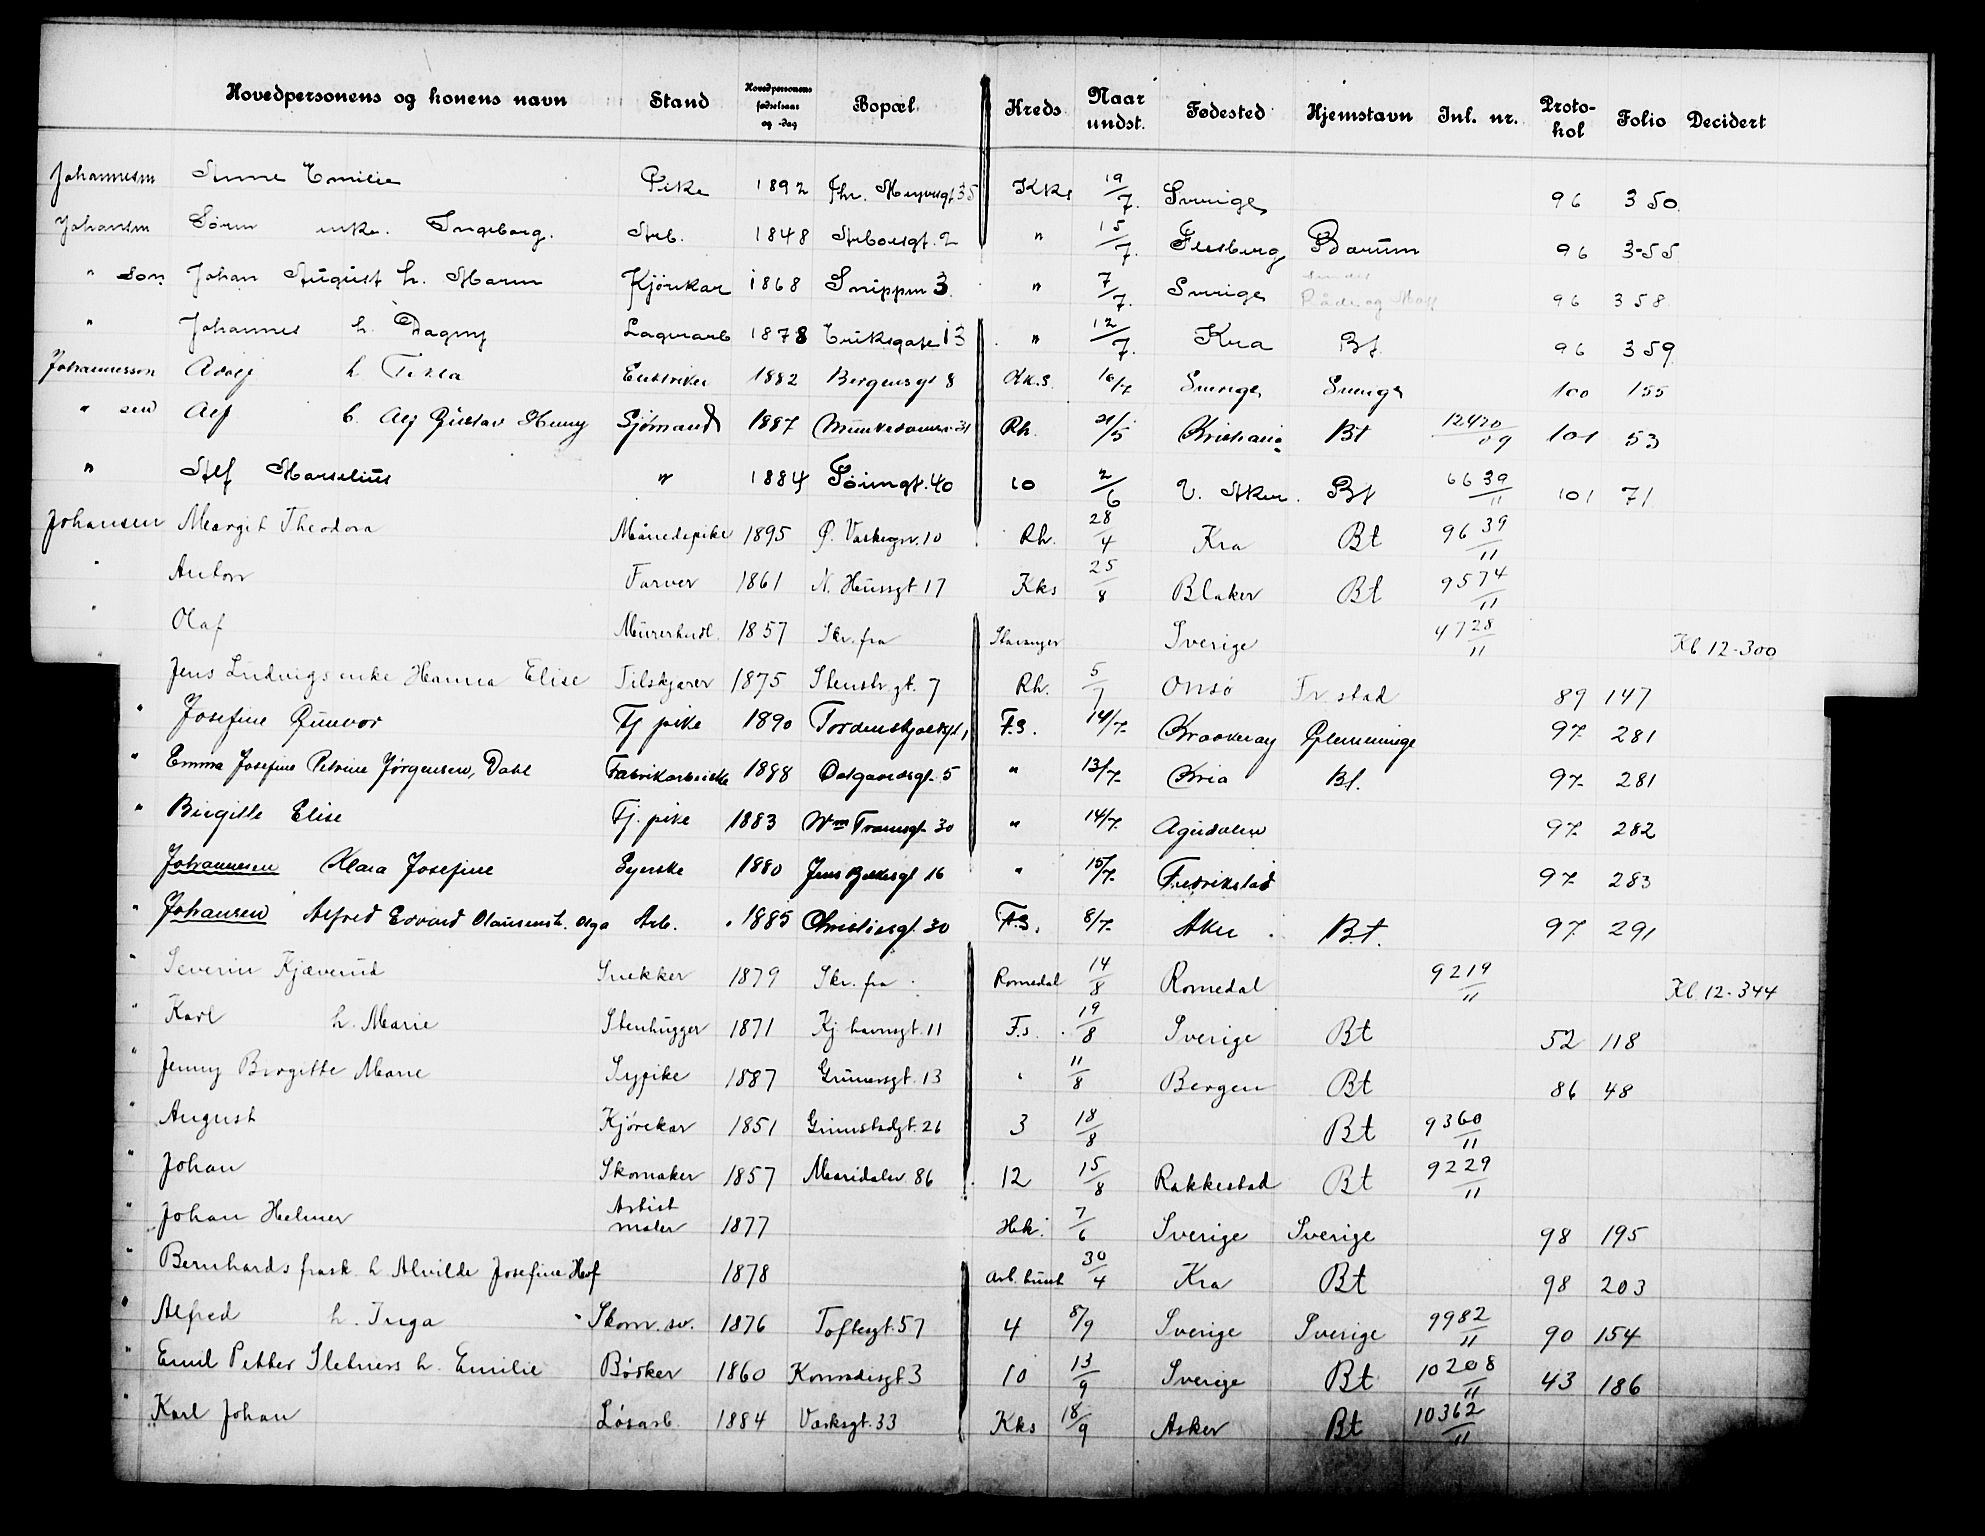 Hovedpersonens og konens navn Stand Hovedpersonens fødselsaar og -dag Bopæl Kreds Naar undst. Fødested Hjemstavn Inl. nr. Protokol Folio Decidert
Johannesen Emilie Pike 1892 35 Kks 19/7. Sverige 96 350.
Johansen Søren enke. Ingeborg. Arb. 1848 Arboesgt. 2 " 15/7. Bærum 96 355
" son Johan August h. Maren Kjørekar 1868 Snippen 3 " 7/7. Sverige Råde og Moss 96 358.
" Johannes h. Dagny Lagerarb 1878 Eriksgate 13 " 12/7. Kra Bt. 96 359.
Johannesson Adolf h Tekla 1882 Bergensgt 8 Kks. 16/7 Sverige Sverige 100 155
" sen Alf b. Alf Gustav Henny Sjømand 1887 31 Rh. 21/5 Kristiania Bt 12470/09 101 53
" Alf Marselius " 1884 40 10 2/6 V. Aker. Bt 6639/11 101 71
Johansen Margit Theodora Månedspike 1895 Ø. Vaskegn. 10 Rh. 28/4 Kra Bt 9639/11
" Anton Farver 1861 N. Hussgt 17 Kks 25/8 Blaker Bt 9574/11
" Olaf Murerhndl. 1857 Skr. fra Stavanger Sverige 4728/11 Kl 12-300
" Jens Ludvigs enke Hanna Elise Tilskjærer 1875 Stenstr. gt. 7 Rh. 5/7 Onsø Fr. stad 89 147
" Josefine Gunvor Tj pike 1890 Tordenskjoldsgt 1 F.S. 14/7. Kraakerøy Glemminge 97 281
" Emma Josefine Petrine Jørgensen, Dahl Fabrikarbeiderske 1888 Dalgaardsgt. 5 " 13/7. Kria Bt. 97 281
" Birgitte Elise Tj. pike 1883 Wm Tramsgt. 30 " 14/7. Agudalen 97 282
Johannesen Klara Josefine Syerske 1880 Jens Bjelkesgt 16 " 15/7. Fredrikstad 97 283
" Johansen Alfred Edvard Olausen h. Olga Arb. 1885 Christiesgt. 30 F.S. 8/7. Aker. B.t. 97 291
" Severin Kjæverud Snekker 1879 Skr. fra Romedal 14/8 Romedal 9219/11 Kl. 12-344
" Karl h. Marie Stenhugger 1871 Kj havnsgt. 11 F.s. 19/8 Sverige Bt 52 118
" Jenny Birgitte Marie Sypike 1887 Grünersgt. 13 " 11/8 Bergen Bt 86 48
" August Kjørekar 1851 Grimstadgt. 26 3 18/8 Bt 9360/11
" Johan Skomaker 1857 Maridalsv. 86 12 15/8 Rakkestad Bt 9229/11
" Johan Helmer Artist maler 1877 Hek. 7/6 Sverige Sverige 98 195
" Bernhards frask. h Alvilde Josefine Hof 1878 Arb. huset 30/4 Kra Bt 98 203
" Alfred h. Inga Skom. sv. 1876 Toftesgt. 57 4 8/9 Sverige Sverige 9982/11 90 154
" Emil Petter Sletners h. Emilie Bøsker 1860 Konradisgt 3 10 13/9 Sverige Bt 10208/11 43 186
" Karl Johan Løsarb. 1884 Vaskegt. 33 Kks 18/9 Asker Bt 10362/11